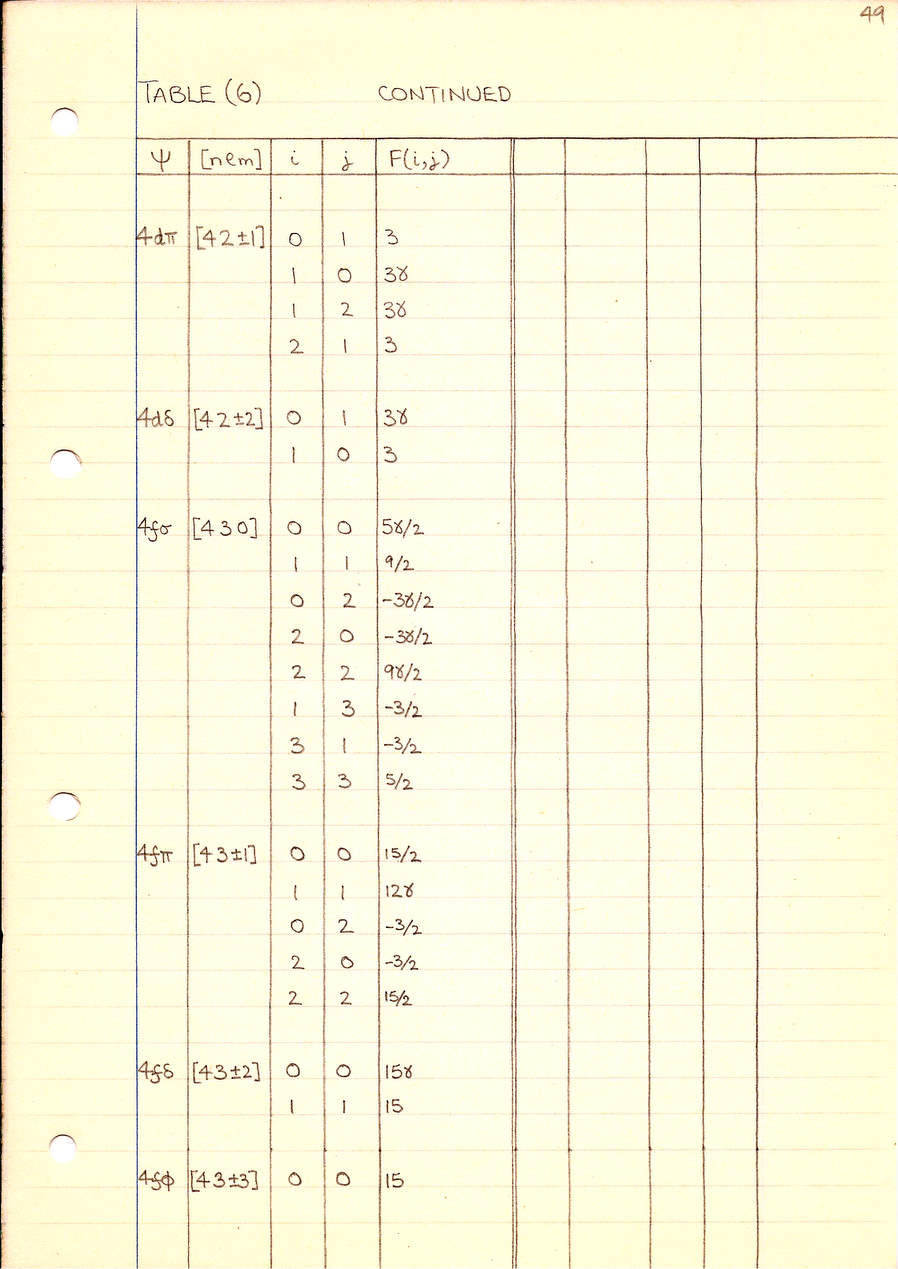 49
TABLE (6) CONTINUED
ψ [nlm] i j F(i,j)
4dπ [42±1] 0 1 3
1 0 3γ
1 2 3γ
2 1 3
4dδ [42±2] 0 1 3γ
1 0 3
4fσ [430] 0 0 5γ/2
1 1 9/2
0 2 -3γ/2
2 0 -3γ/2
2 2 9γ/2
1 3 -3/2
3 1 -3/2
3 3 5/2
4fπ [43±1] 0 0 15/2
1 1 12γ
0 2 -3/2
2 0 -3/2
2 2 15/2
4fδ [43±2] 0 0 15γ
1 1 15
4fφ [43±3] 0 0 15